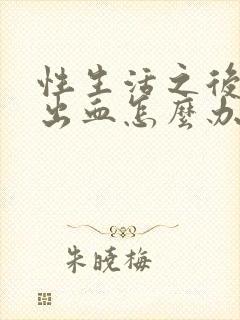 性生活之後
出血怎麼办
朱曉梅